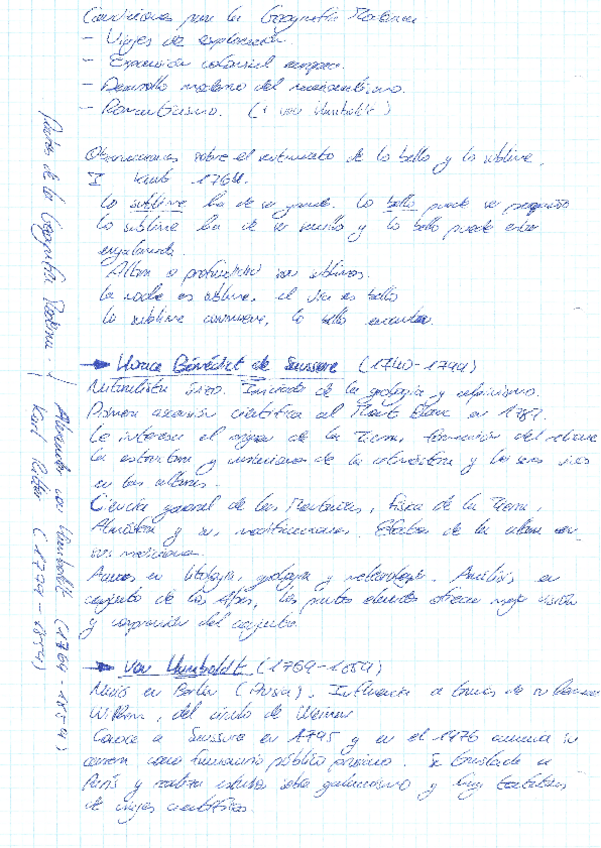 Condiciones para la Geografía Moderna
- Viajes de exploración.
- Expansión colonial europea.
- Desarrollo moderno del
- Romanticismo. (+ von Humboldt)
Observaciones sobre el sentimiento de lo bello y lo sublime.
I Kant 1764.
Lo sublime ha de ser grande. Lo bello puede ser pequeño
Lo sublime ha de ser sencillo y lo bello puede estar
engalanado.
Altura o profundidad son sublimes.
La noche es sublime, el día es bello
Lo sublime conmueve, lo bello encanta.
→ Horace Bénédict de Saussure (1740-1799)
Naturalista suizo. Iniciador de la geología y alpinismo.
Primera ascensión científica al Mont Blanc en 1787.
Le interesa el origen de la Tierra, formación del relieve
la estructura y de la atmósfera y los seres vivos
en las alturas.
Ciencia general de las Montañas, física de la Tierra,
Atmósfera y sus modificaciones. Efectos de la altura en
Avances en litología, geología y meteorología. Análisis en
conjunto de los Alpes, los puntos elevados ofrecen mejor visión
y comprensión del conjunto.
→ von Humboldt (1769-1859)
Nació en Berlín (Prusia). Influencia a través de su hermano
Wilhem, del círculo de Weimar
Conoce a Saussure en 1795 y en el 1796 su
carrera como funcionario público prusiano. Se traslada a
París y realiza estudios sobre galvanismo y
de viajes científicos.
Padres de la Geografía Moderna.
Alexander von Humboldt (1769-1859)
Karl Ritter (1779-1859)